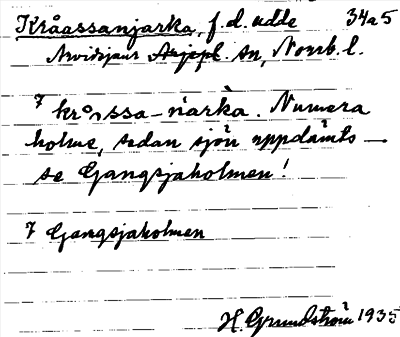 Kråassanjarka, f.d. udde 34a5
Arvidsjaur Arjepl. sn, Norrb. l.
7 krossa-ńàrka. Numera
holme, sedan sjön uppdämts —
se Gangsjaholmen!
7 Gangsjaholmen
H. Grundström 1935